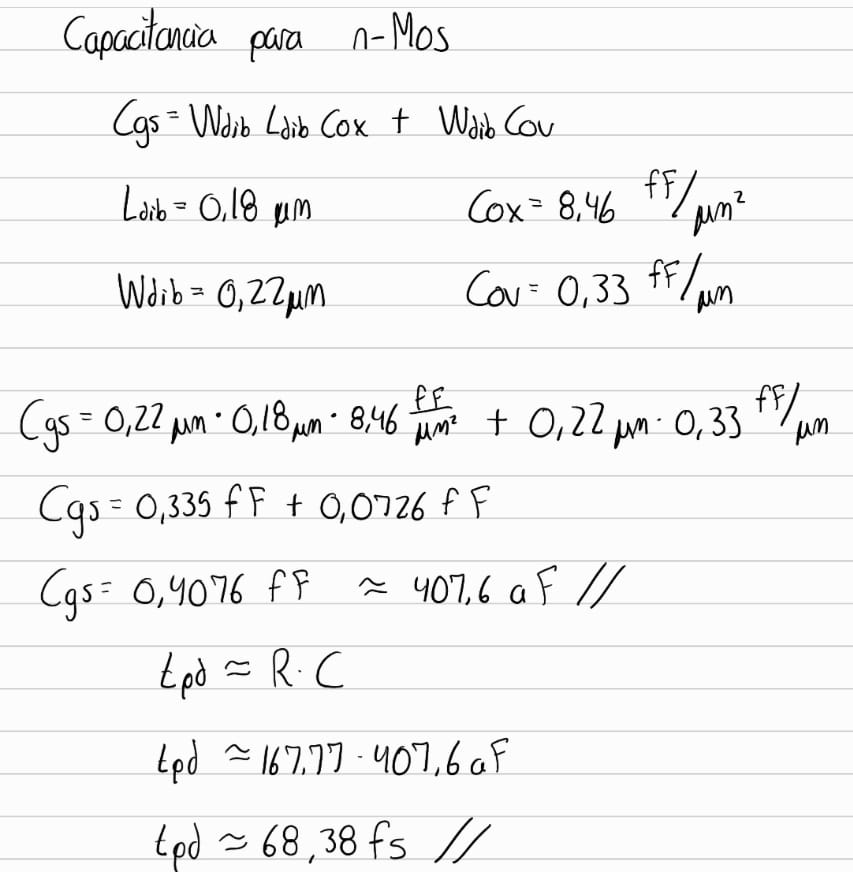 Capacitancia para n-Mos
Cgs = Wdib Ldib Cox + Wdib Cov
Ldib = 0,18 µm Cox = 8,46 fF/µm²
Wdib = 0,22µm Cov = 0,33 fF/µm
Cgs = 0,22 µm · 0,18µm · 8,46 fF/µm² + 0,22 µm · 0,33 fF/µm
Cgs = 0,335 fF + 0,0726 fF
Cgs = 0,4076 fF ≈ 407,6 aF //
tpd ≈ R·C
tpd ≈ 167,77 · 407,6 aF
tpd ≈ 68,38 fs //